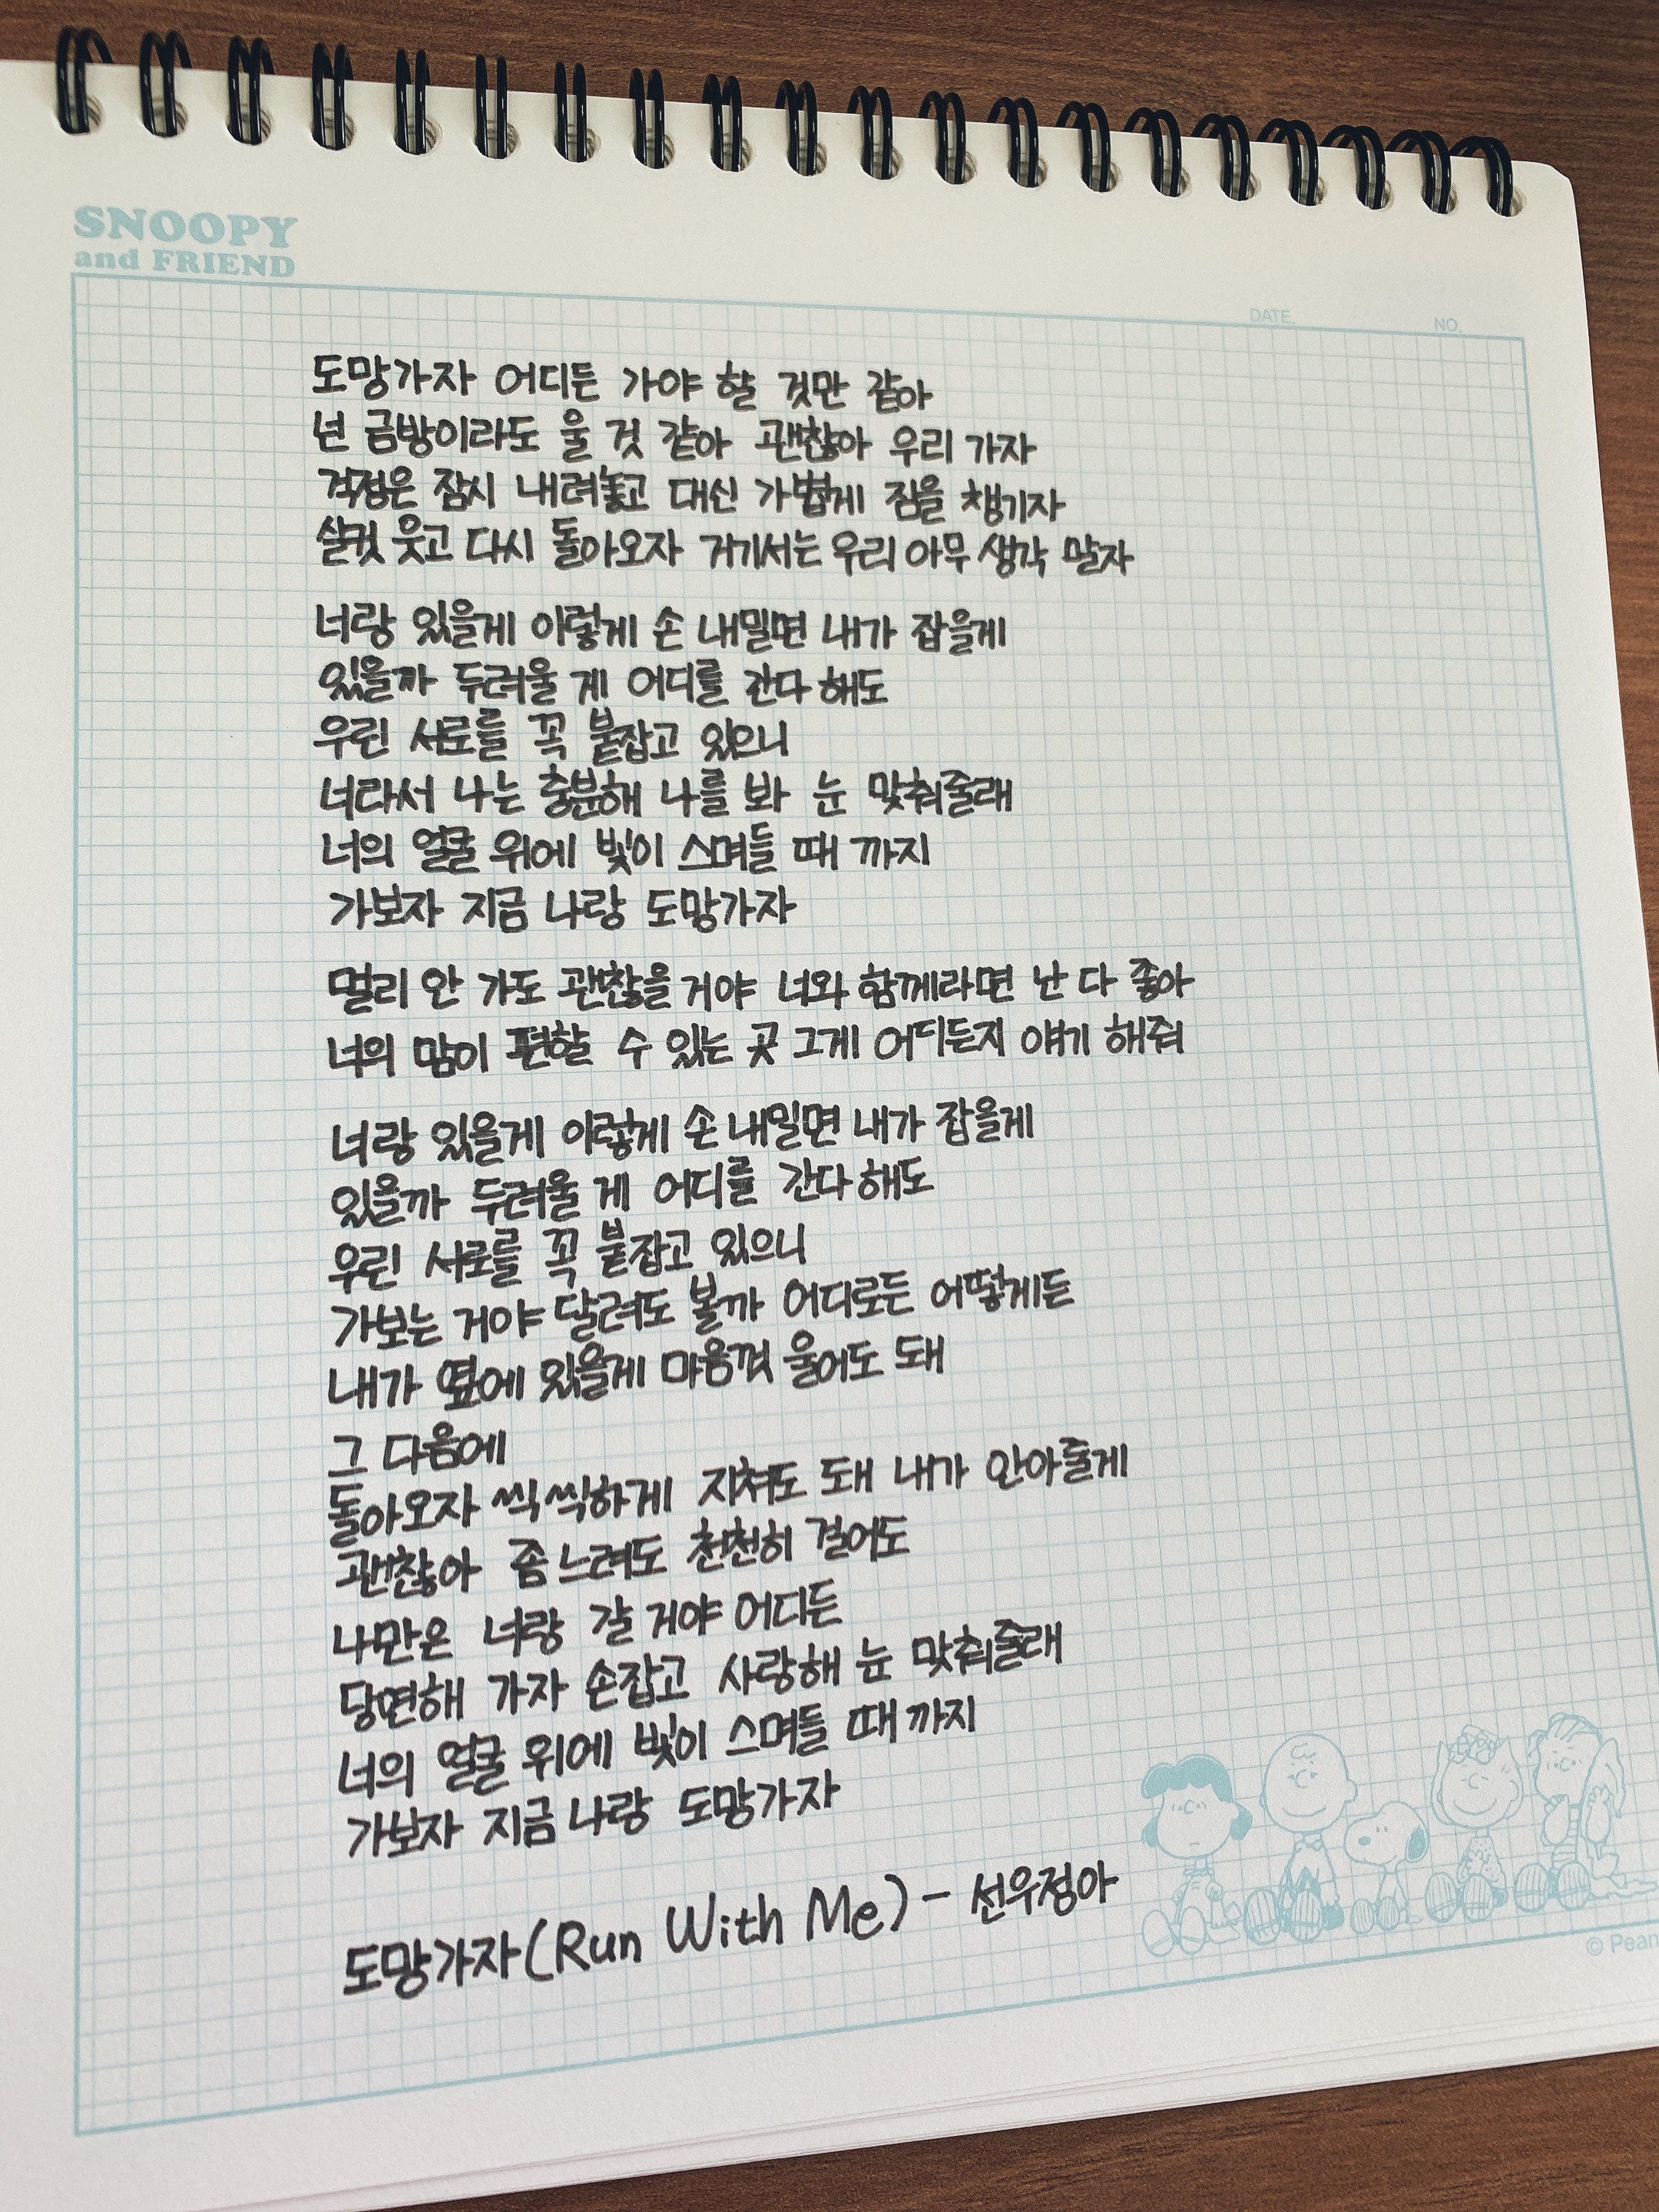 SNOOPY
and FRIEND
DATE.
NO.
도망가자 어디든 가야 할 것만 같아
넌 금방이라도 울 것 같아 괜찮아 우리 가자
걱정은 잠시 내려놓고 대신 가볍게 짐을 챙기자
실컷 웃고 다시 돌아오자 거기서는 우리 아무 생각 말자
너랑 있을게 이렇게 손 내밀면 내가 잡을게
있을까 두려울 게 어디를 간다 해도
우린 서로를 꼭 붙잡고 있으니
너라서 나는 충분해 나를 봐 눈 맞춰줄래
너의 얼굴 위에 빛이 스며들 때 까지
가보자 지금 나랑 도망가자
멀리 안 가도 괜찮을 거야 너와 함께라면 난 다 좋아
너의 맘이 편할 수 있는 곳 그게 어디든지 얘기 해줘
너랑 있을게 이렇게 손 내밀면 내가 잡을게
있을까 두려울 게 어디를 간다 해도
우린 서로를 꼭 붙잡고 있으니
가보는 거야 달려도 볼까 어디로든 어떻게든
내가 옆에 있을게 마음껏 울어도 돼
그 다음에
돌아오자 씩씩하게 지쳐도 돼 내가 안아줄게
괜찮아 좀 느려도 천천히 걸어도
나만은 너랑 갈 거야 어디든
당연해 가자 손잡고 사랑해 눈 맞춰줄래
너의 얼굴 위에 빛이 스며들 때 까지
가보자 지금 나랑 도망가자
도망가자(Run With Me) - 선우정아
© Pean